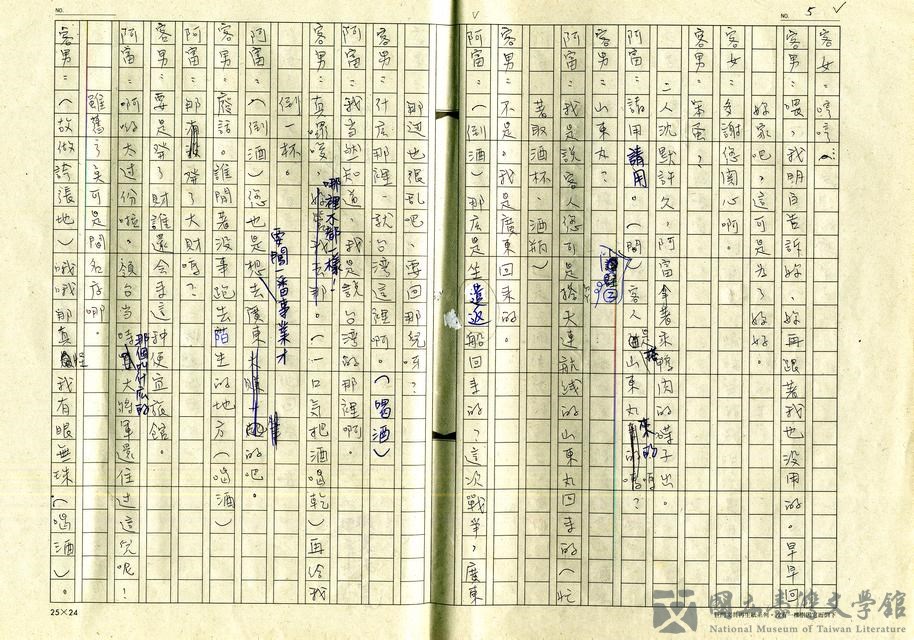 NO. 5
客女：哼哼…
客男：喂，我明白告訴妳、妳再跟著我也沒用的。早早回
好家吧，這可是為了妳好。
客女：多謝您関心啊。
客男：笨蛋？
二人沈默許久，阿富拿著來鴨肉的碟子出。
阿富：請用請用。（問）客人是搭山東丸來的嗎？
客男：山東丸？
阿富：我是說客人您可是搭大連航线的山東丸回來的（忙
著取酒杯、酒瓶）
客男：不是。我是廣東回來的。
阿富：（倒酒）那么是坐遣返船回來的？這次戰爭，廣東
那边也很乱吧，要回那玩呀？
客男：什么那裡—就台湾這裡啊。（喝酒）
阿富：我当然知道，我是說台湾的那裡啊。
客男：真囉唆，哪裡不都一樣！（一口気把酒喝乾）再给我
倒一杯。
阿富：（倒酒）您也是想去廣東要闖一番事業才的吧。
客男：廢話。誰閒著没事跑去陌生的地方（喝酒）
阿富：那有没有發了大財嗎？
客男：要是發了財誰還会來這种便宜旅館。
阿富：啊喲太过份啦。領台当時那個叫什么的大將軍還住过這兒呢！
雖舊了矣可是間名店哪。
客男：（故做誇張地）哦哦那真怪我有眼無珠（喝酒）。
NO.
25×24
國立台灣文學館
National Museum of Taiwan Literature